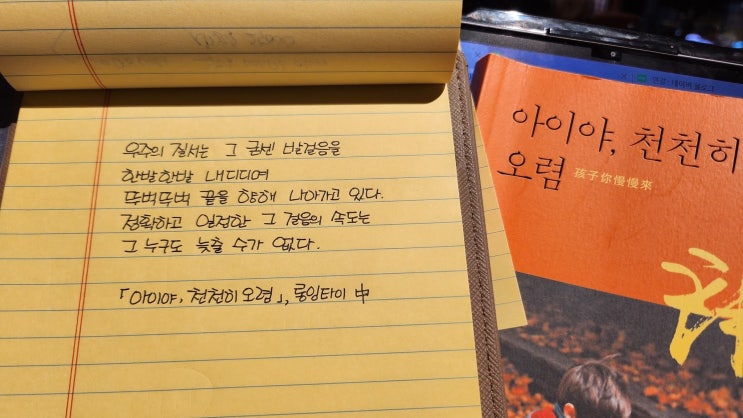 우주의 질서는 그 굳센 발걸음을
한발 한발 내디디며
뚜벅뚜벅 끝을 향해 나아가고 있다.
정확하고 일정한 그 걸음의 속도는
그 누구도 늦출 수가 없다.
「아이야, 천천히 오렴」, 룽잉타이 中
아이야, 천천히
오렴
孩子你慢慢來